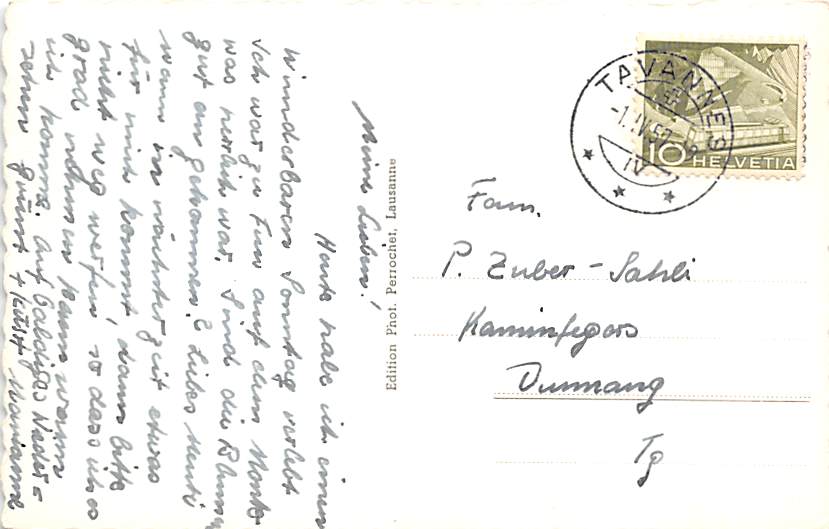 Meine Lieben!
Heute habe ich einen
wunderbaren Sonntag verlebt
Ich war zu Fuss auf dem Monto
was herrlich war. Sind die Blumen
gut an gekommen? Liebes Mutti
wenn in nächster Zeit etwas
für mich kommt, dann bitte
nicht weg werfen, so dass ich es
grad nehmen kann wenn
ich komme. Auf baldiges Wieder=
sehen grüsst + küsst Marianne
Edition Phot. Perrochet, Lausanne
TAVANNES
-1.IV.52
IV
10 HELVETIA
Fam.
P. Zuber-Sahli
Kaminfegers
Dussnang
Tg